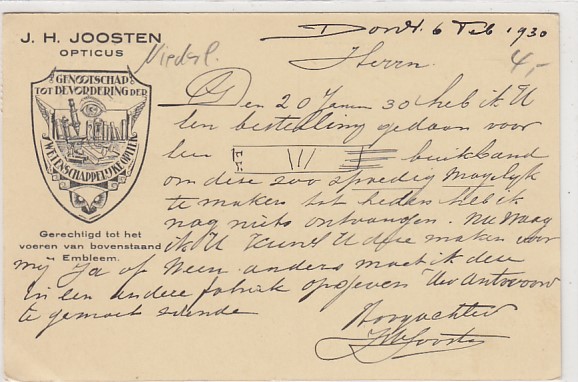 J. H. JOOSTEN
OPTICUS
Niederl.
Dordt. 6 Feb 1930
4,-
Heeren
GENOOTSCHAP
TOT BEVORDERING DER
WETENSCHAPPELIJKE OPTIEK
Den 20 Janu 30 heb ik U
een bestelling gedaan voor
een buikband
om deze zoo spoedig mogelijk
te maken tot heden heb ik
nog niets ontvangen. Nu vraag
ik U kunt U deze maken voor
mij Ja of Neen anders moet ik deze
in een andere fabriek opgeven Uw Antwoord
te gemoet ziende
Hoogachtend
J H Joosten
Gerechtigd tot het
voeren van bovenstaand
Embleem.